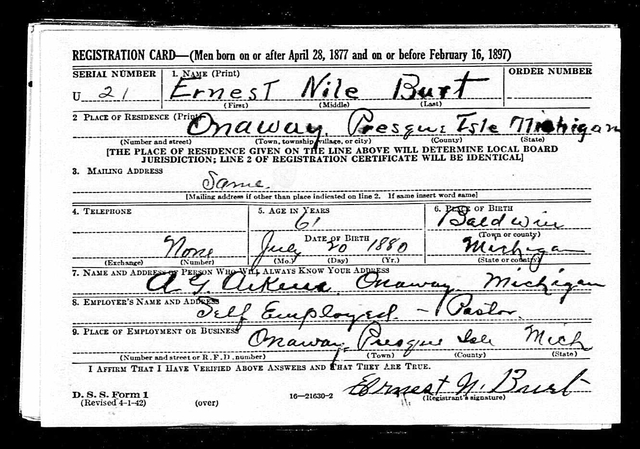 REGISTRATION CARD—(Men born on or after April 28, 1877 and on or before February 16, 1897)
SERIAL NUMBER 1. NAME (Print) ORDER NUMBER
U 21 Ernest Nile Burt
(First) (Middle) (Last)
2 PLACE OF RESIDENCE (Print)
Onaway, Presque Isle Michigan
(Number and street) (Town, township, village, or city) (County) (State)
[THE PLACE OF RESIDENCE GIVEN ON THE LINE ABOVE WILL DETERMINE LOCAL BOARD
JURISDICTION; LINE 2 OF REGISTRATION CERTIFICATE WILL BE IDENTICAL]
3. MAILING ADDRESS
Same
[Mailing address if other than place indicated on line 2. If same insert word same]
4. TELEPHONE 5. AGE IN YEARS 6. PLACE OF BIRTH
61 Baldwin
DATE OF BIRTH (Town or county)
None July 20 1880 Michigan
(Exchange) (Number) (Mo.) (Day) (Yr.) (State or country)
7. NAME AND ADDRESS OF PERSON WHO WILL ALWAYS KNOW YOUR ADDRESS
A G. Onaway Michigan
8. EMPLOYER'S NAME AND ADDRESS
Self Employed - Pastor
9. PLACE OF EMPLOYMENT OR BUSINESS
Onaway, Presque Isle Mich
(Number and street or R. F. D. number) (Town) (County) (State)
I AFFIRM THAT I HAVE VERIFIED ABOVE ANSWERS AND THAT THEY ARE TRUE.
Ernest N. Burt
D. S. S. Form 1 (Registrant's signature)
(Revised 4-1-42) (over) 16—21630-2